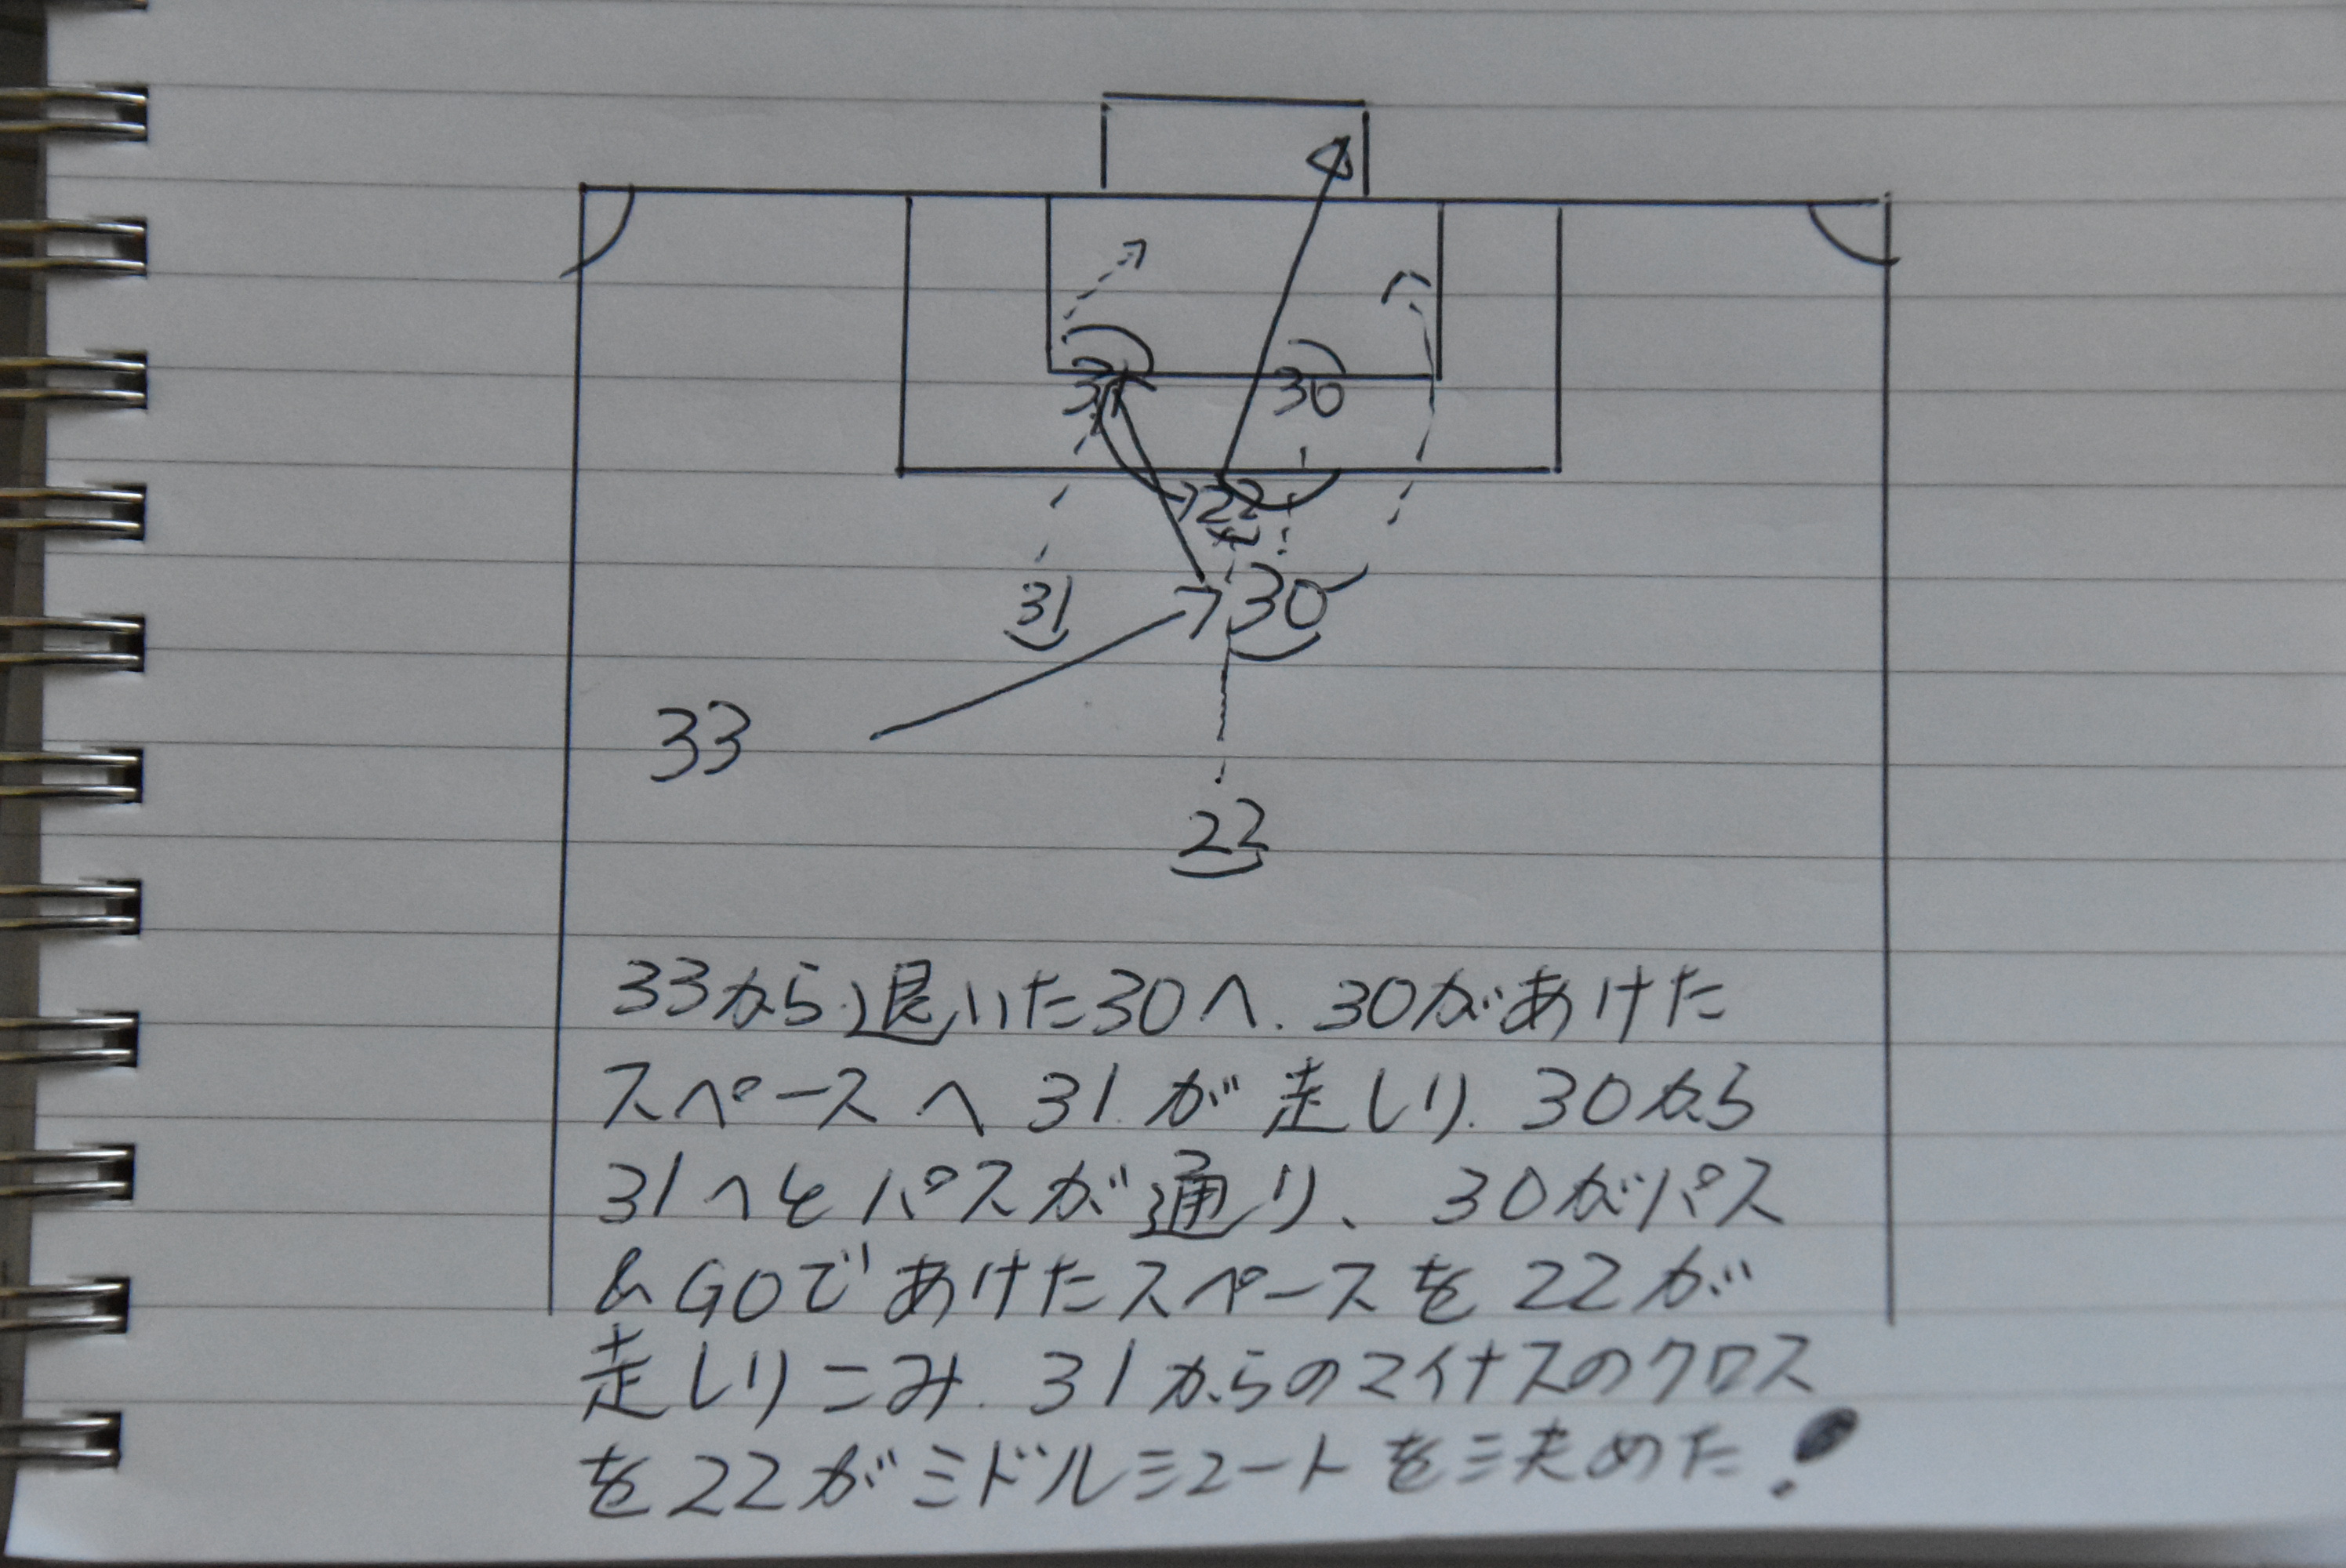 31
30
22
31
30
33
22
33から退いた30へ. 30があけた
スペースへ31が走しり. 30から
31へとパスが通り、30がパス
& GOであけたスペースを22が
走しりこみ. 31からのマイナスのクロス
を22がミドルシュートを決めた!